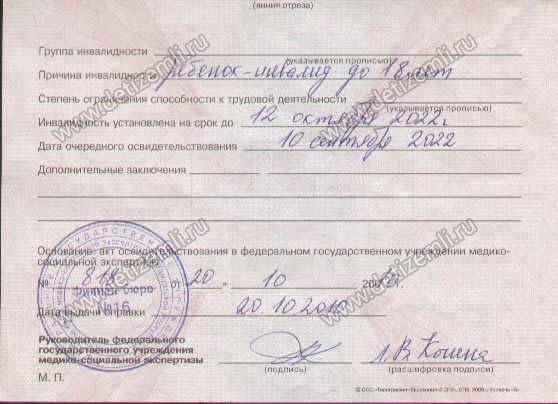 (линия отреза)
Группа инвалидности
(указывается прописью)
Причина инвалидности ребенок-инвалид до 18 лет
Степень ограничения способности к трудовой деятельности
(указывается прописью)
Инвалидность установлена на срок до 12 октября 2022г
Дата очередного освидетельствования 10 сентября 2022
Дополнительные заключения
Основание: акт освидетельствования в федеральном государственном учреждении медико-
социальной экспертизы
№ от "20" 10 200
Филиал бюро
№16
Дата выдачи справки 20.10.2010
Руководитель федерального
государственного учреждения
медико-социальной экспертизы
(подпись) (расшифровка подписи)
М. П.
www.detizemli.ru
www.detizemli.ru
www.detizemli.ru
www.detizemli.ru
www.detizemli.ru
www.detizemli.ru